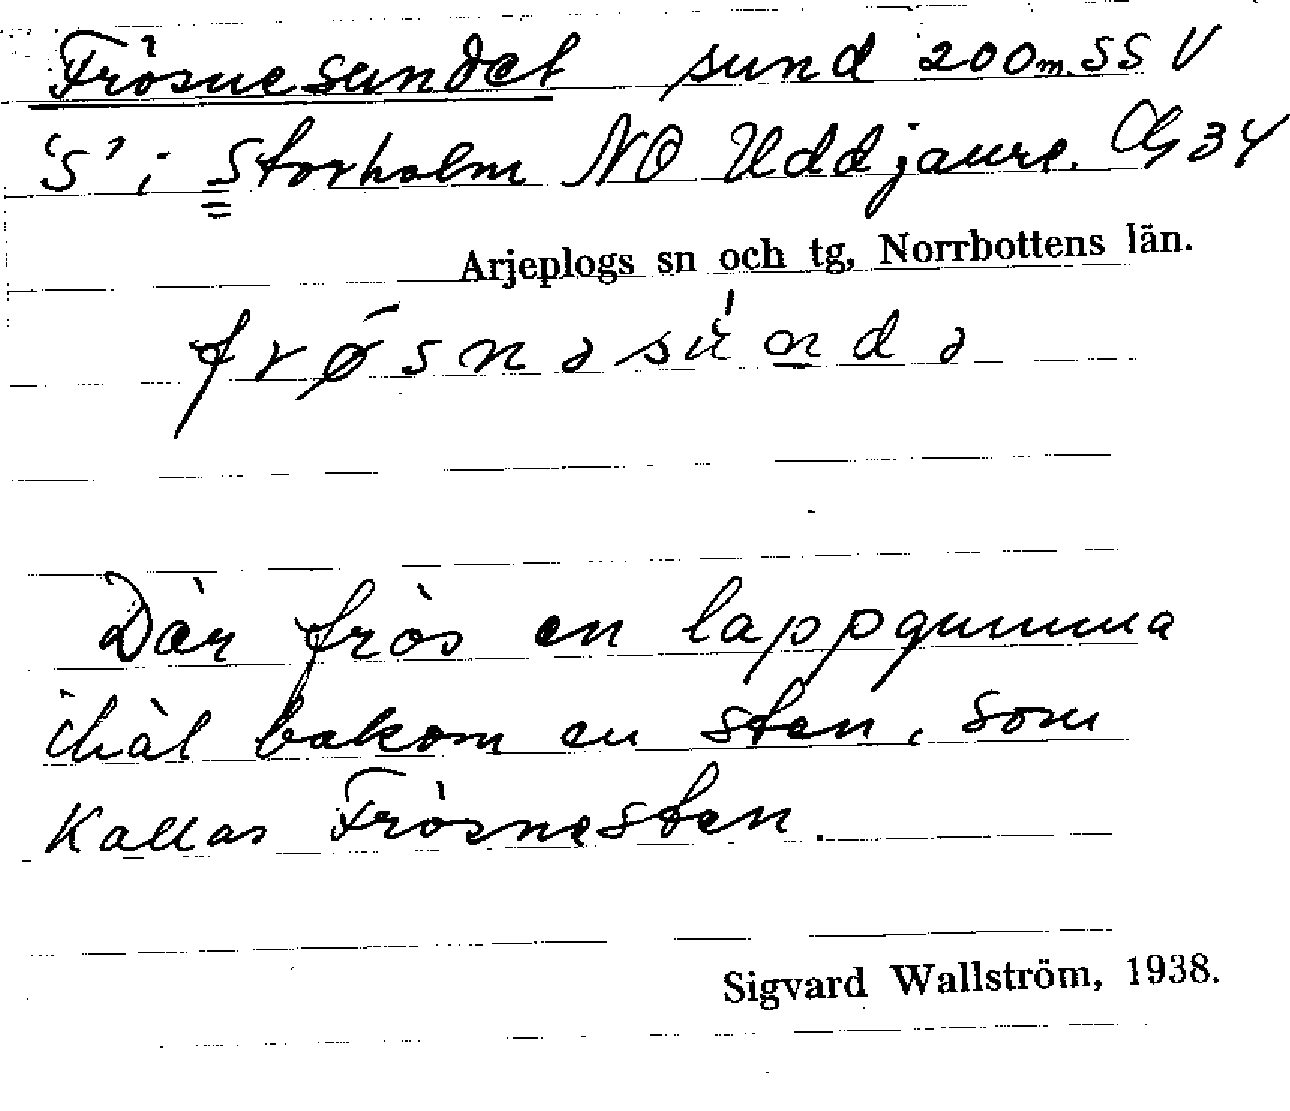 Frösnesundet sund 200 m. SSV
'S' i Storholm NO Uddjaure. Cg 34
Arjeplogs sn och tg, Norrbottens län.
frø̄snəsúndə
Där frös en lappgumma
ihäl bakom en sten, som
kallas Frösnesten.
Sigvard Wallström, 1938.